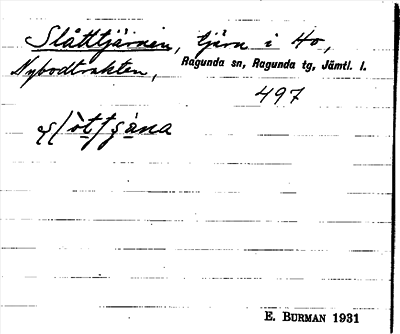 Slåttjärnen, tjärn i Ho,
Nybodtrakten, Ragunda sn, Ragunda tg, Jämtl. l.
497
E. BURMAN 1931